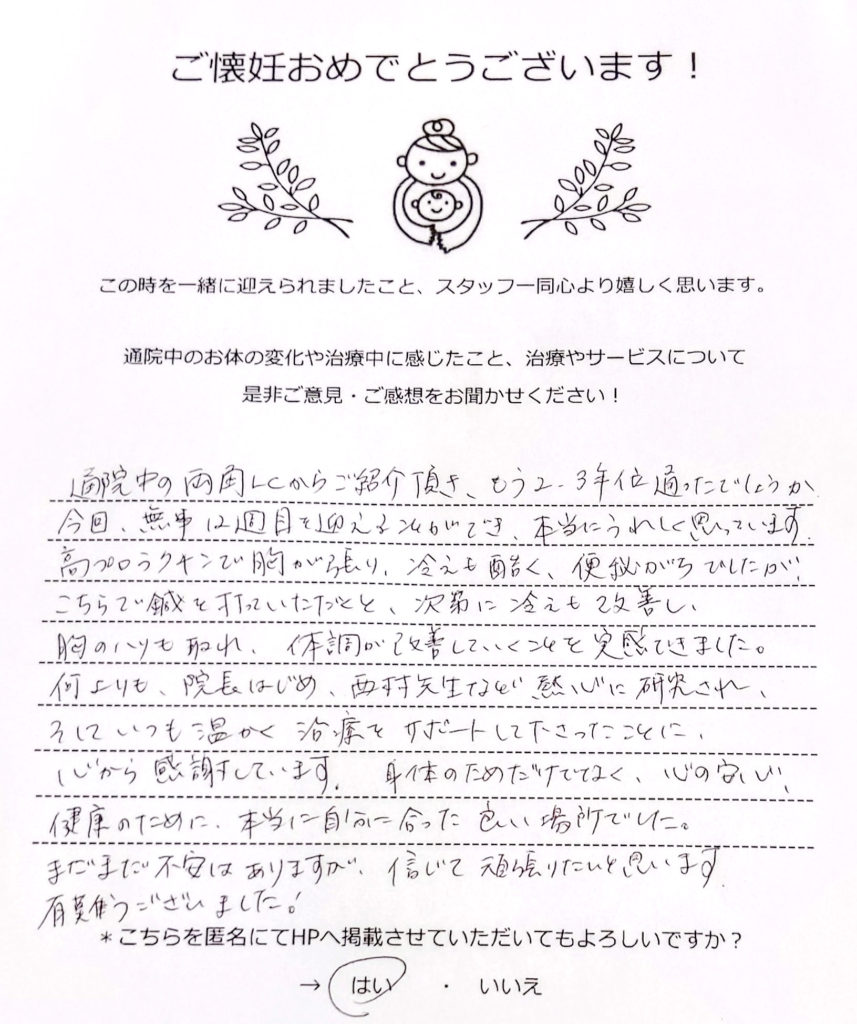 ご懐妊おめでとうございます！
この時を一緒に迎えられましたこと、スタッフ一同心より嬉しく思います。
通院中のお体の変化や治療中に感じたこと、治療やサービスについて
是非ご意見・ご感想をお聞かせください！
通院中の両角LCからご紹介頂き、もう2、3年位通ったでしょうか
今回、無事12週目を迎えることができ、本当にうれしく思っています。
高プロラクチンで胸が張り、冷えも酷く、便秘がちでしたが、
こちらで鍼を打っていただくと、次第に冷えも改善し、
胸のハリも取れ、体調が改善していくことを実感できました。
何よりも、院長はじめ、西村先生などが熱心に研究され、
そしていつも温かく治療をサポートして下さったことに、
心から感謝しています。身体のためだけでなく、心の安心、
健康のために、本当に自分に合った良い場所でした。
まだまだ不安はありますが、信じて頑張りたいと思います。
有難うございました！
＊こちらを匿名にてHPへ掲載させていただいてもよろしいですか？
→ はい ・ いいえ